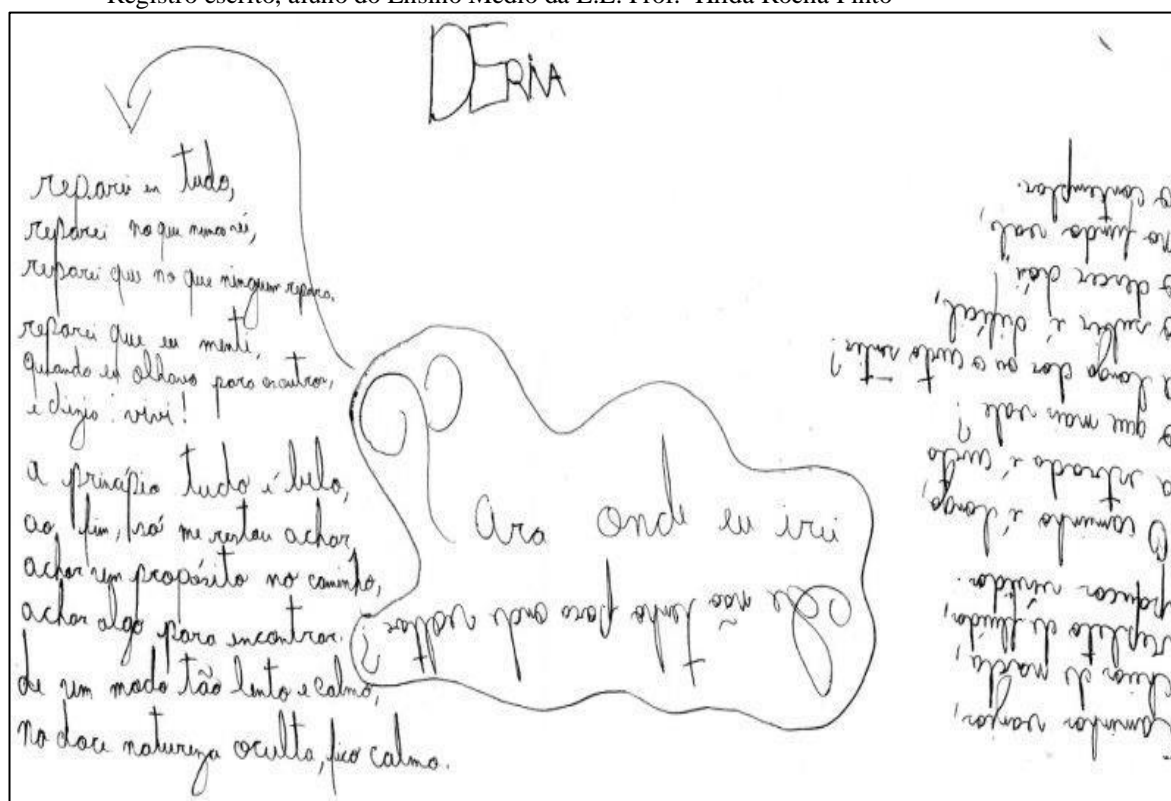 Registro escrito, aluno do Ensino Médio da E.E. Prof.ª Rocha Pinto
DERIVA
reparei em tudo,
reparei no que nunca vi,
reparei que no que ninguem repara.
reparei que eu menti,
quando eu olhava para os outros,
e dizia: vivi!
A princípio tudo é belo,
ao fim, só me restou achar,
achar um propósito no caminho,
achar algo para encontrar.
de um modo tão lento e calmo,
na doce natureza oculta, fico calmo.
Para onde eu irei
Se não tenho para onde voltar?
caminhos vazios,
cheios de nada,
repleto de fluidos,
poucos vividos.
O caminho é longo,
a estrada é curta
o que mais vale?
a longa dor ou o curto sentir?
o subir é difícil,
o descer dói!
no fundo vale,
o contemplar.